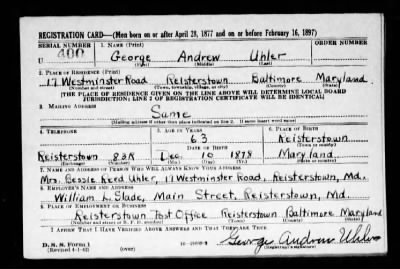 REGISTRATION CARD—(Men born on or after April 28, 1877 and on or before February 16, 1897)
SERIAL NUMBER 1. NAME (Print) ORDER NUMBER
U 400 George Andrew Uhler
(First) (Middle) (Last)
2. PLACE OF RESIDENCE (Print)
17 Westminster Road Reisterstown Baltimore Maryland
(Number and street) (Town, township, village, or city) (County) (State)
[THE PLACE OF RESIDENCE GIVEN ON THE LINE ABOVE WILL DETERMINE LOCAL BOARD
JURISDICTION; LINE 2 OF REGISTRATION CERTIFICATE WILL BE IDENTICAL]
3. MAILING ADDRESS
Same
[Mailing address if other than place indicated on line 2. If same insert word same]
4. TELEPHONE 5. AGE IN YEARS 6. PLACE OF BIRTH
63 Reisterstown
DATE OF BIRTH (Town or county)
Reisterstown 83R Dec. 10 1878 Maryland
(Exchange) (Number) (Mo.) (Day) (Yr.) (State or country)
7. NAME AND ADDRESS OF PERSON WHO WILL ALWAYS KNOW YOUR ADDRESS
Mrs. Bessie Reed Uhler, 17 Westminster Road, Reisterstown, Md.
8. EMPLOYER'S NAME AND ADDRESS
William L. Slade, Main Street, Reisterstown, Md.
9. PLACE OF EMPLOYMENT OR BUSINESS
Reisterstown Post Office Reisterstown Baltimore Maryland
(Number and street or R. F. D. number) (Town) (County) (State)
I AFFIRM THAT I HAVE VERIFIED ABOVE ANSWERS AND THAT THEY ARE TRUE.
D. S. S. Form 1 George Andrew Uhler
(Revised 4-1-42) (over) (Registrant's signature)